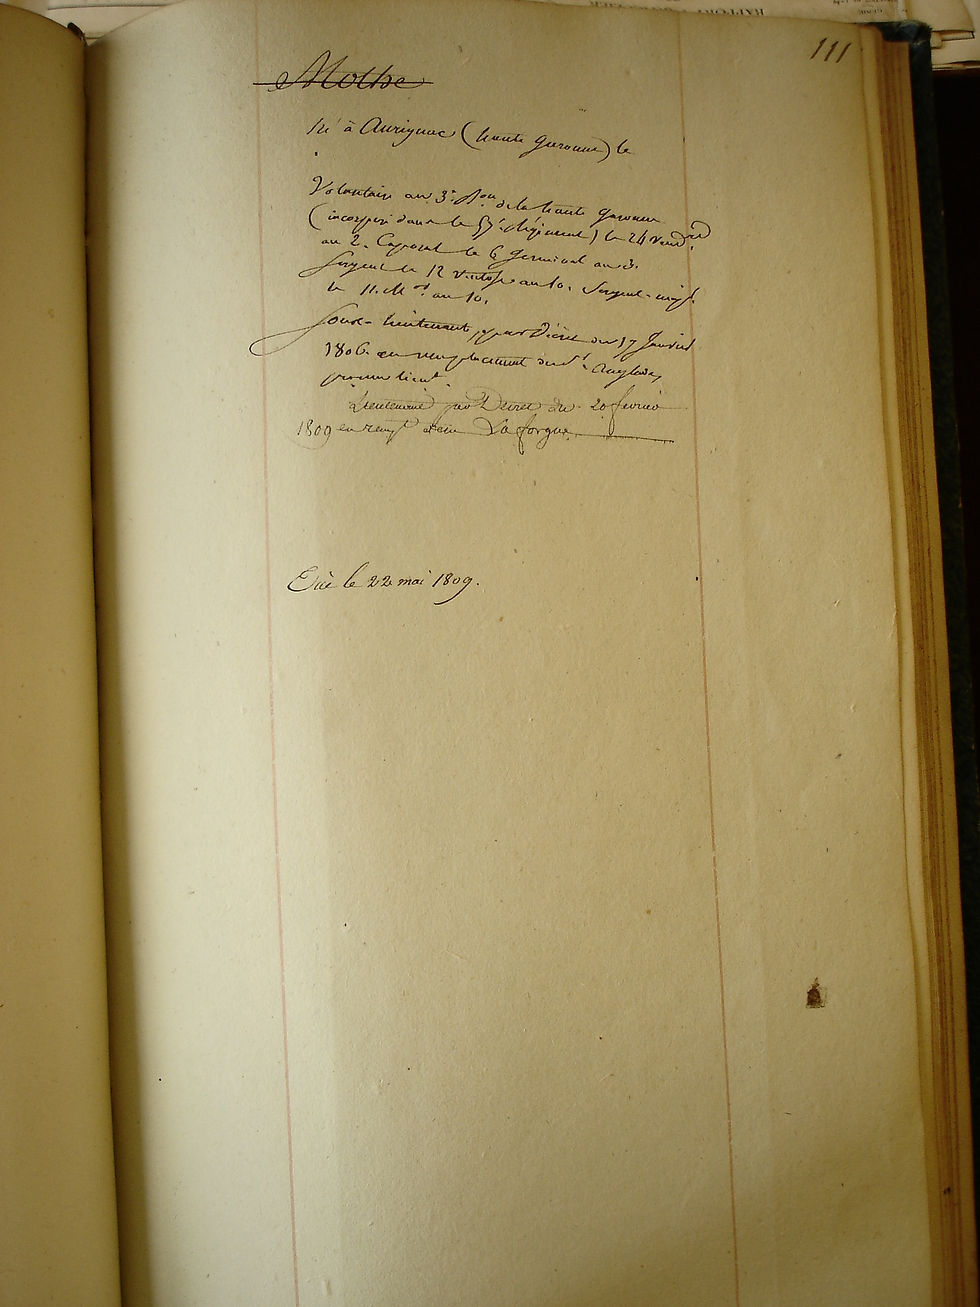 111
Mothe
Né à Aurignac (haute garonne) le
Volontaire au 3e. Bon de la haute garonne
(incorporé dans le 57e. Régiment) le 24 vendre
an 2. Caporal le 6 germinal an 3.
Sergent le 12 ventose an 10. Sergent-major
le 11. Mdor an 10.
Sous-lieutenant par Décret du 17 Janvier
1806. en remplacement du Sr. Anglade,
promu lieut.
Lieutenant par Décret du 20 fevrier
1809 en rempt de Laforgue.
Tué le 22 mai 1809.